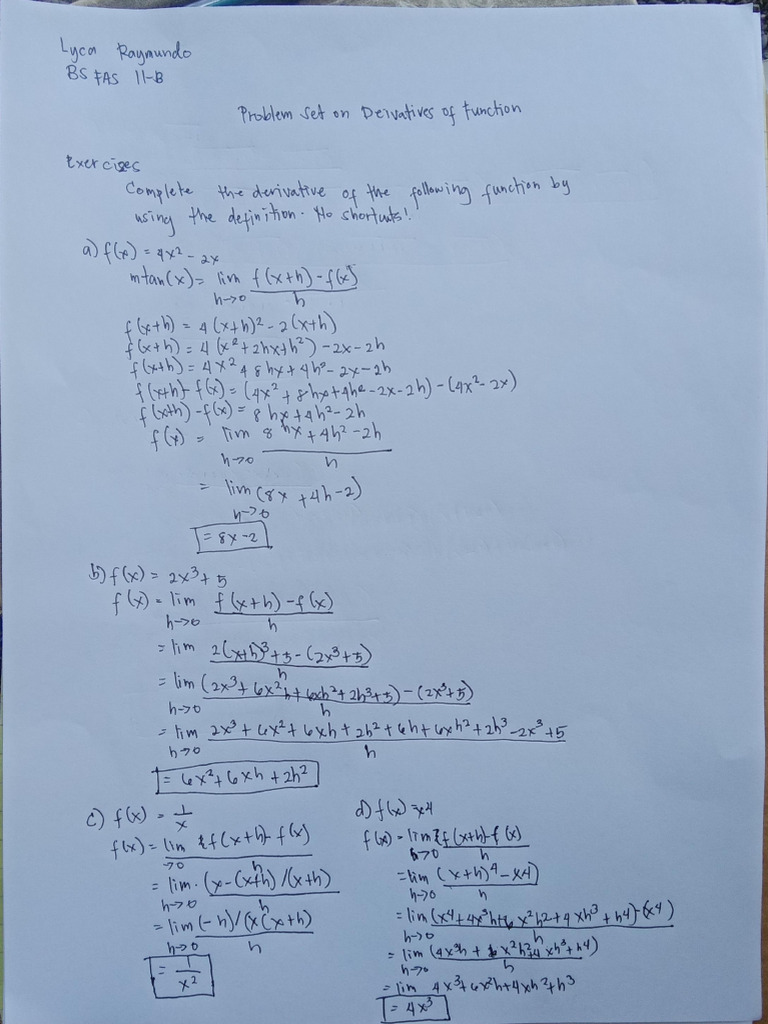 Lyca Raymundo
BS FAS II-B
Problem Set on Derivatives of Function
Exercises
Complete the derivative of the following function by
using the definition. No shortcuts!
a) f(x) = 4x² - 2x
mtan(x) = lim f(x+h) - f(x)
h→0 h
f(x+h) = 4(x+h)² - 2(x+h)
f(x+h) = 4(x² + 2hx + h²) - 2x - 2h
f(x+h) = 4x² + 8hx + 4h² - 2x - 2h
f(x+h) - f(x) = (4x² + 8hx + 4h² - 2x - 2h) - (4x² - 2x)
f(x+h) - f(x) = 8hx + 4h² - 2h
f(x) = lim 8hx + 4h² - 2h
h→0 h
= lim (8x + 4h - 2)
h→0
= 8x - 2
b) f(x) = 2x³ + 5
f(x) = lim f(x+h) - f(x)
h→0 h
= lim 2(x+h)³ + 5 - (2x³ + 5)
h
= lim (2x³ + 6x²h + 6xh² + 2h³ + 5) - (2x³ + 5)
h→0 h
= lim 2x³ + 6x² + 6xh + 2h² + 6h + 6xh² + 2h³ - 2x³ + 5
h→0 h
= 6x² + 6xh + 2h²
c) f(x) = 1/x
f(x) = lim f(x+h) - f(x)
→0 h
= lim. (x - (x+h) / (x+h)
h→0 h
= lim (-h) / (x(x+h)
h→0 h
= 1/x²
d) f(x) = x4
f(x) = lim f(x+h) - f(x)
h→0 h
= lim (x+h)⁴ - x4)
h→0 h
= lim (x⁴ + 4x³h + 6x²h² + 4xh³ + h4) - (x4)
h→0 h
= lim (4x³h + 6x²h² + 4xh³ + h4)
h→0 h
= lim 4x³ + 6x²h + 4xh² + h³
= 4x³